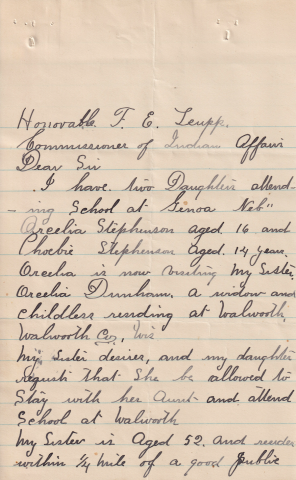 Honorable F. E. Leupp.
Commissioner of Indian Affairs
Dear Sir
I have two Daughters attend-
-ing School at Genoa Neb"
Orcelia Stephenson aged 16 and
Phoebie Stephenson aged 14 years.
Orcelia is now visiting my Sister,
Orcelia Dunham, a widow and
childless residing at Walworth,
Walworth Co, Wis
My Sister desires, and my daughter
requests that She be allowed to
Stay with her Aunt and attend
School at Walworth
My Sister is Aged 52. and resides
within 1/4 mile of a good public